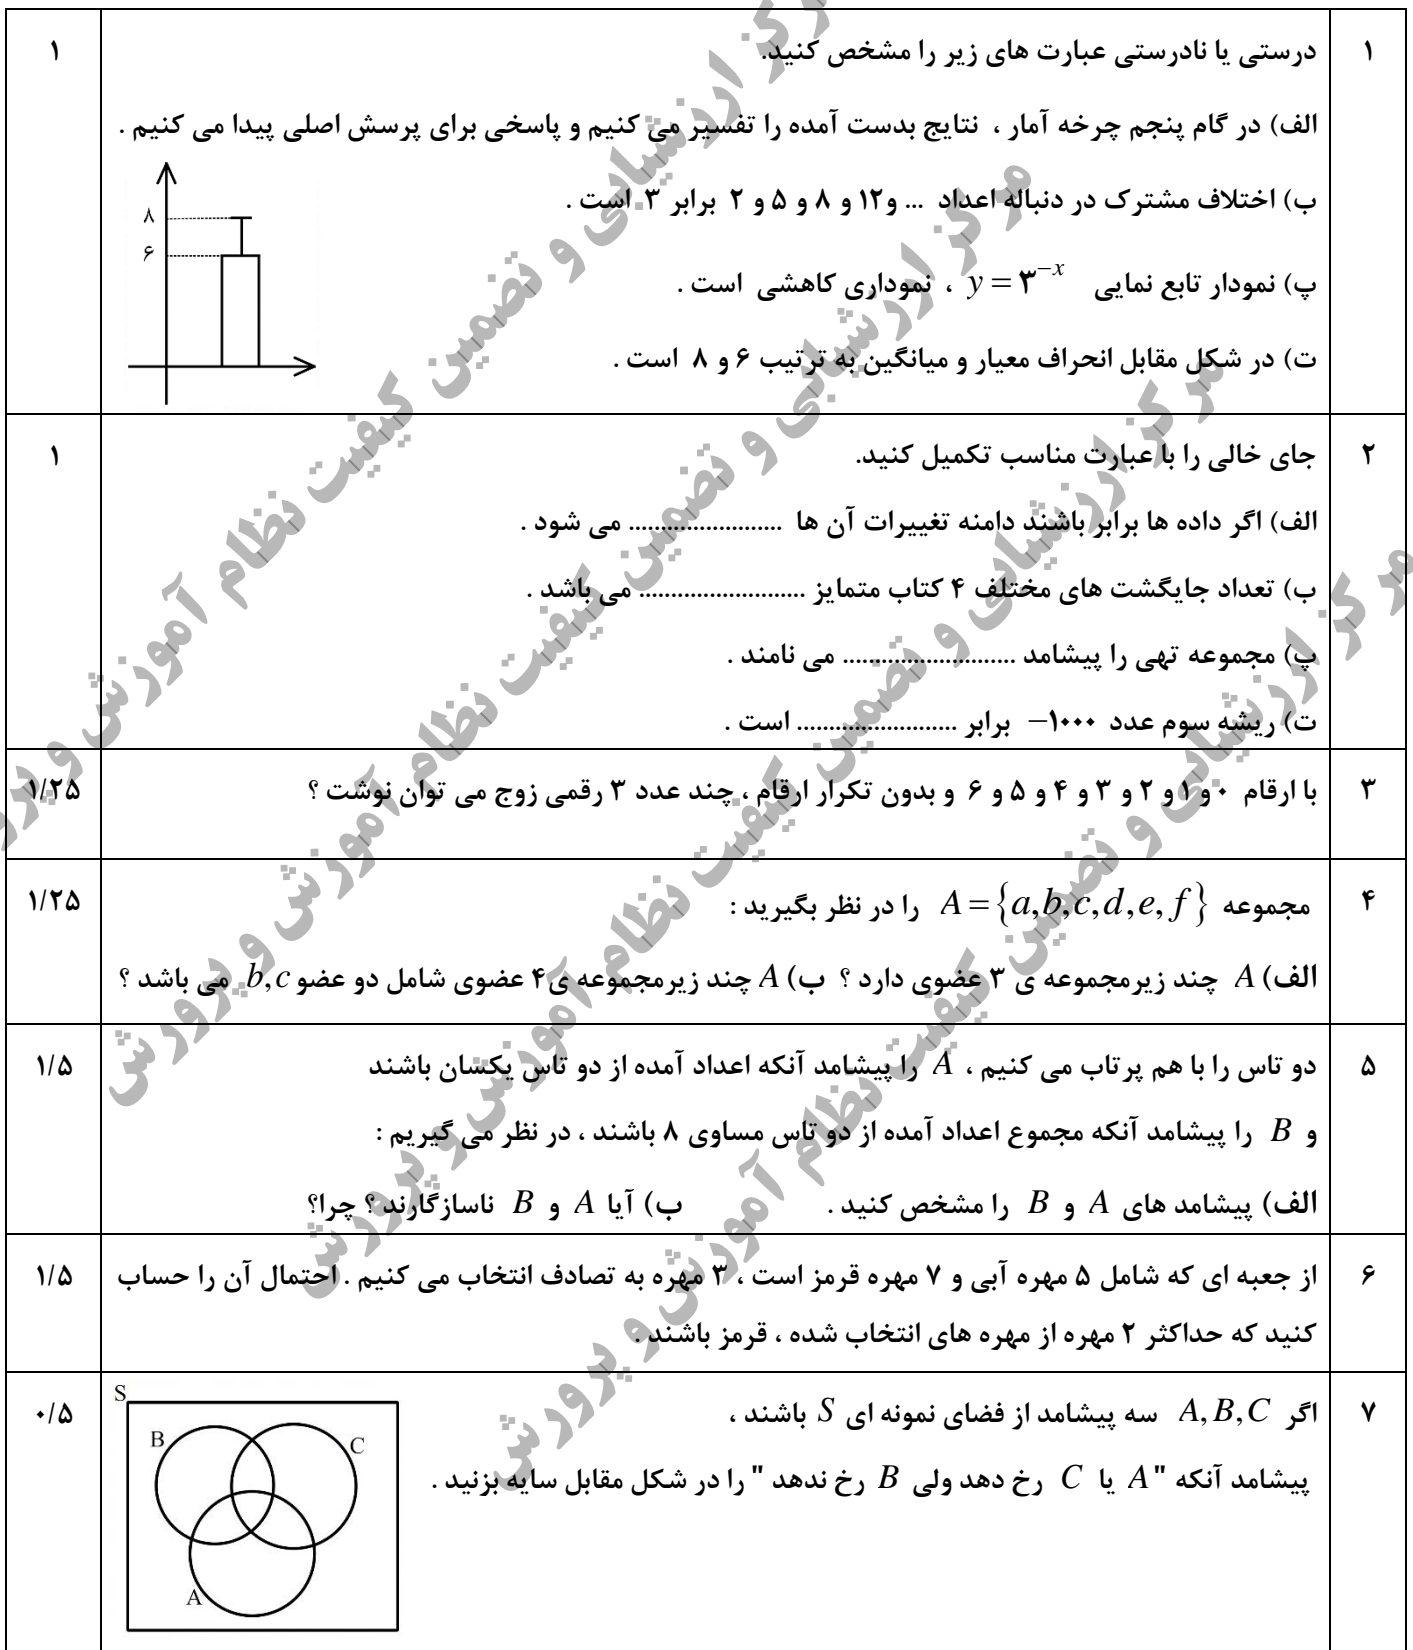 ۱ درستی یا نادرستی عبارت های زیر را مشخص کنید. ۱
الف) در گام پنجم چرخه آمار ، نتایج بدست آمده را تفسیر می کنیم و پاسخی برای پرسش اصلی پیدا می کنیم .
ب) اختلاف مشترک در دنباله اعداد ... و۱۲ و ۸ و ۵ و ۲ برابر ۳ است .
پ) نمودار تابع نمایی y = ۳^{-x} ، نموداری کاهشی است .
ت) در شکل مقابل انحراف معیار و میانگین به ترتیب ۶ و ۸ است .
۸
۶
۲ جای خالی را با عبارت مناسب تکمیل کنید. ۱
الف) اگر داده ها برابر باشند دامنه تغییرات آن ها ........................ می شود .
ب) تعداد جایگشت های مختلف ۴ کتاب متمایز .......................... می باشد .
پ) مجموعه تهی را پیشامد ........................... می نامند .
ت) ریشه سوم عدد −۱۰۰۰ برابر ......................... است .
۳ با ارقام ۰ و ۱ و ۲ و ۳ و ۴ و ۵ و ۶ و بدون تکرار ارقام ، چند عدد ۳ رقمی زوج می توان نوشت ؟ ۱/۲۵
۴ مجموعه A = {a,b,c,d,e,f} را در نظر بگیرید : ۱/۲۵
الف) A چند زیرمجموعه ی ۳ عضوی دارد ؟ ب) A چند زیرمجموعه ی۴ عضوی شامل دو عضو b,c می باشد ؟
۵ دو تاس را با هم پرتاب می کنیم ، A را پیشامد آنکه اعداد آمده از دو تاس یکسان باشند ۱/۵
و B را پیشامد آنکه مجموع اعداد آمده از دو تاس مساوی ۸ باشند ، در نظر می گیریم :
الف) پیشامد های A و B را مشخص کنید . ب) آیا A و B ناسازگارند ؟ چرا؟
۶ از جعبه ای که شامل ۵ مهره آبی و ۷ مهره قرمز است ، ۳ مهره به تصادف انتخاب می کنیم . احتمال آن را حساب ۱/۵
کنید که حداکثر ۲ مهره از مهره های انتخاب شده ، قرمز باشند .
۷ اگر A,B,C سه پیشامد از فضای نمونه ای S باشند ، ۰/۵
پیشامد آنکه "A یا C رخ دهد ولی B رخ ندهد " را در شکل مقابل سایه بزنید .
S
B
C
A
مرکز ارزشیابی و تضمین کیفیت نظام آموزش و پرورش
مرکز ارزشیابی و تضمین کیفیت نظام آموزش و پرورش
مرکز ارزشیابی و تضمین کیفیت نظام آموزش و پرورش
مرکز ارزشیابی و تضمین کیفیت نظام آموزش و پرورش